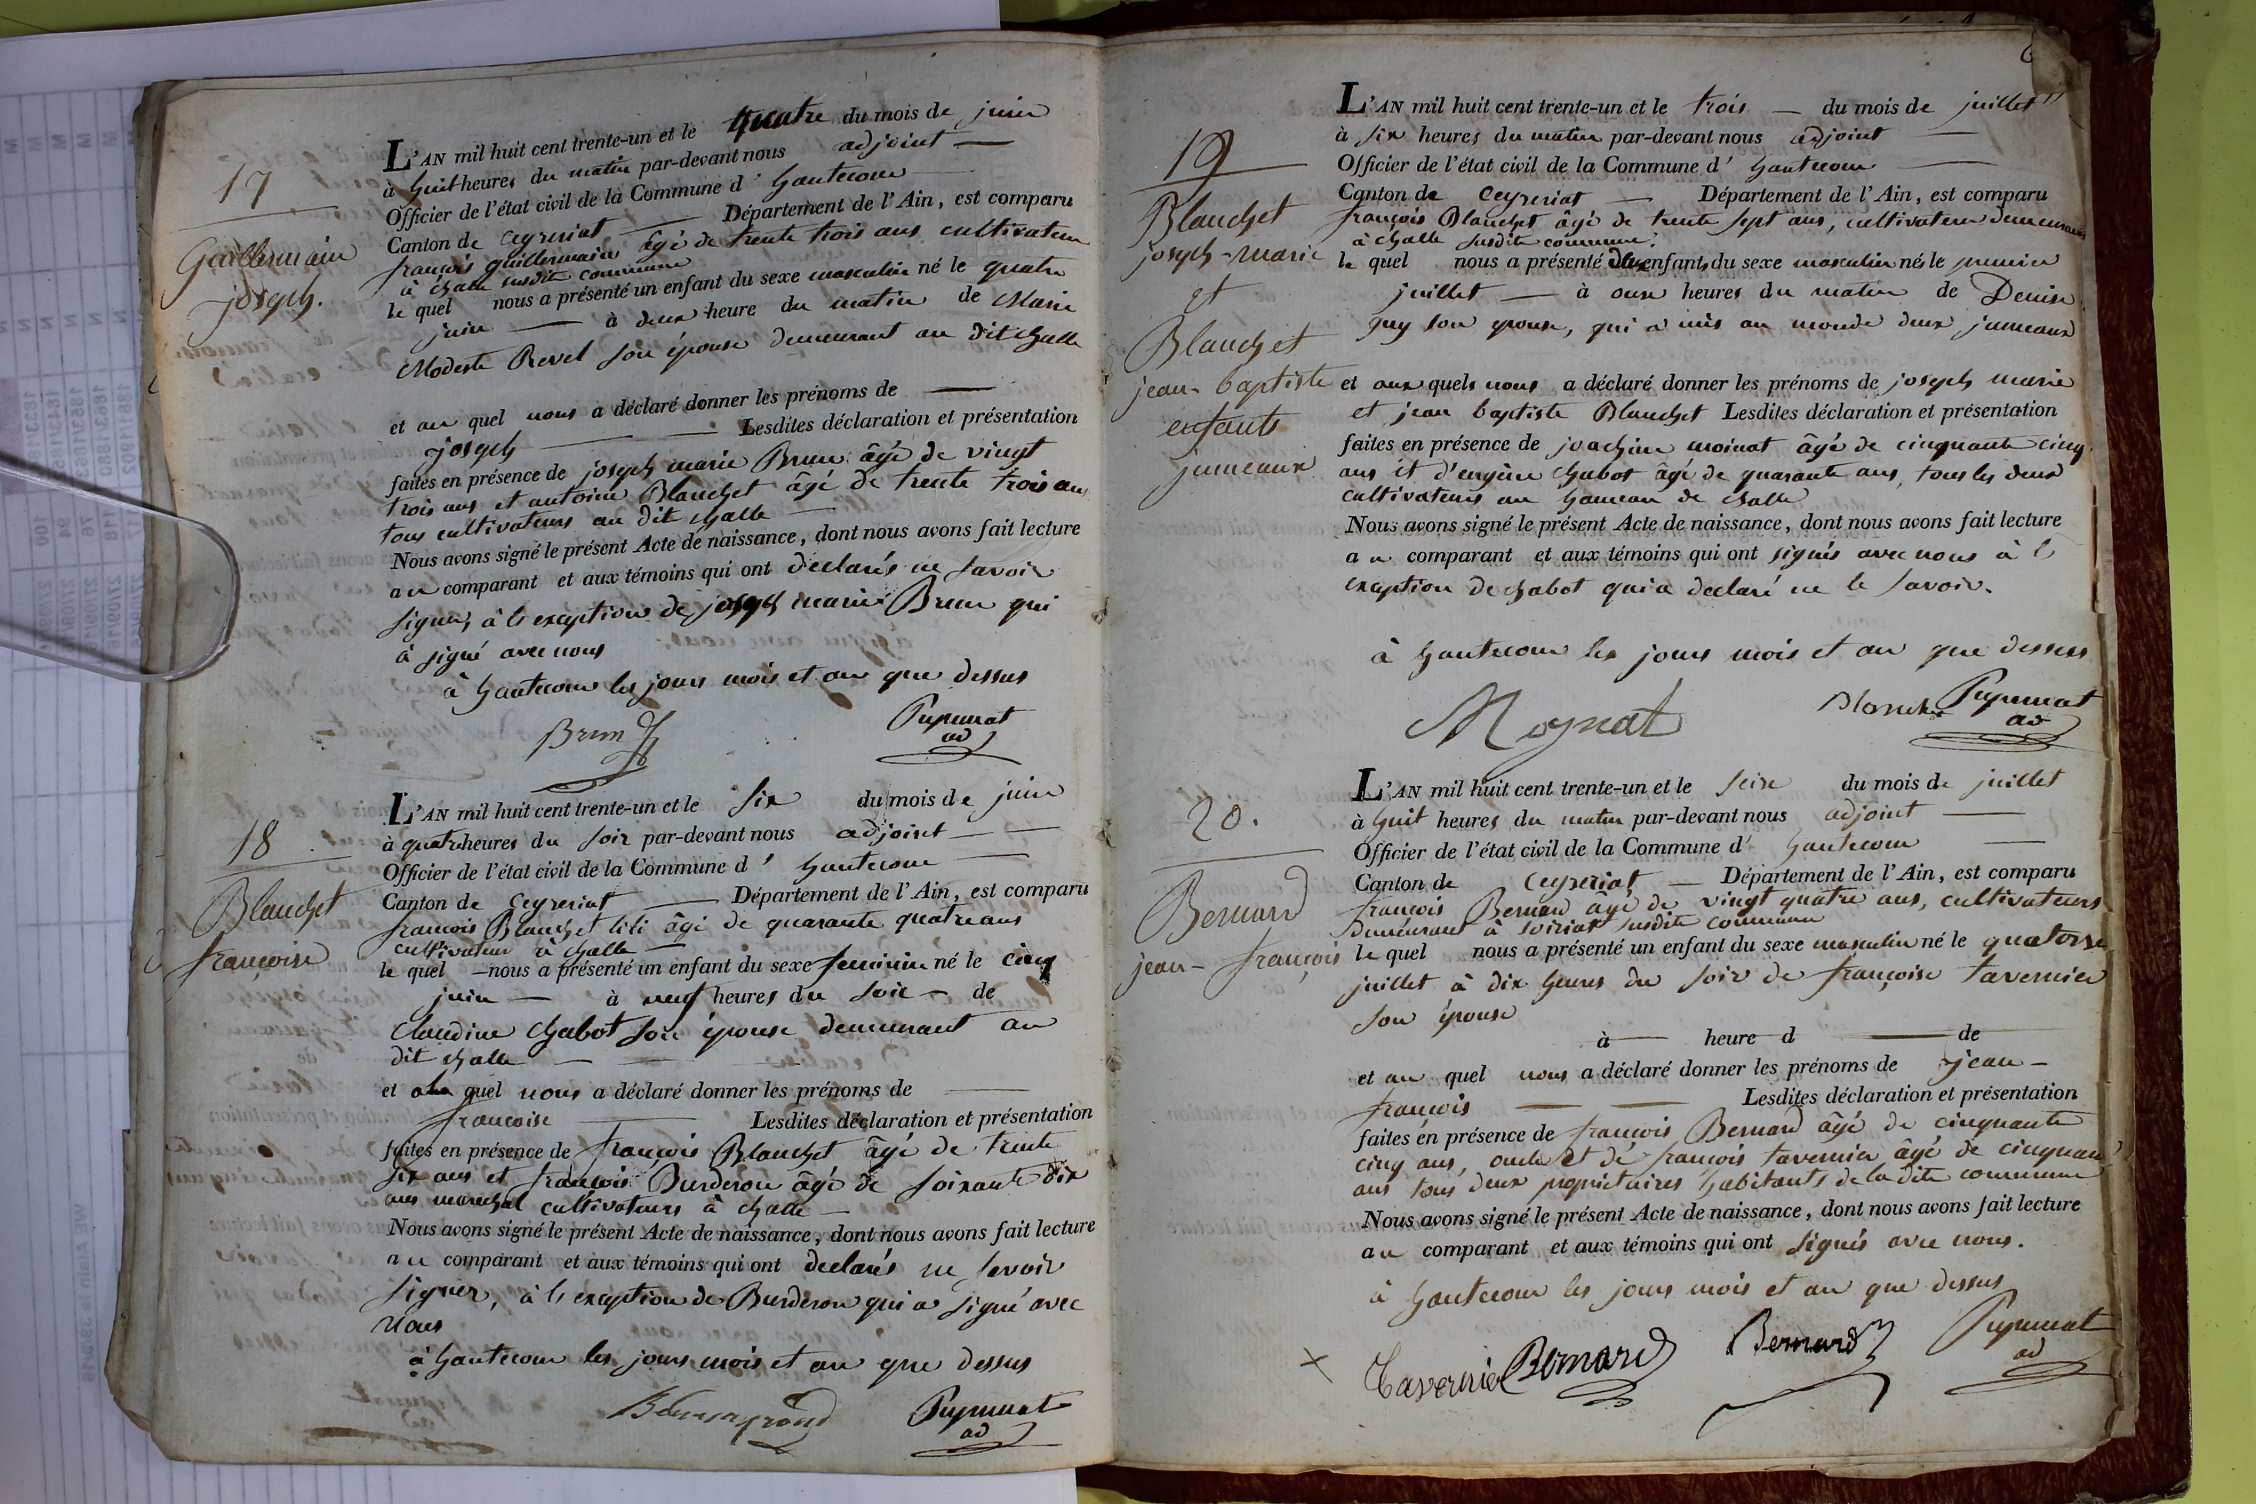 17
Guillermain
joseph.
L'AN mil huit cent trente-un et le quatre du mois de juin
à huit heures du matin par-devant nous adjoint —
Officier de l'état civil de la Commune d' hautecour
Canton de Ceyzeriat — Département de l'Ain, est comparu
françois guillermain âgé de trente trois ans cultivateur
à challe susdite commune
le quel nous a présenté un enfant du sexe masculin né le quatre
juin — à deux heure du matin de Marie
Modeste Revel son épouse demeurant au dit challe
et au quel nous a déclaré donner les prénoms de —
joseph — Lesdites déclaration et présentation
faites en présence de joseph marie Brun âgé de vingt
trois ans et antoine Blanchet âgé de trente trois ans
tous cultivateurs au dit challe —
Nous avons signé le présent Acte de naissance, dont nous avons fait lecture
au comparant et aux témoins qui ont declarés ne savoir
signer, à l'exception de joseph marie Brun qui
à signé avec nous
à hautecour les jours mois et an que dessus
Brun
ad
18
Blanchet
françoise
L'AN mil huit cent trente-un et le six du mois de juin
à quatre heures du soir par-devant nous adjoint —
Officier de l'état civil de la Commune d' hautecour —
Canton de Ceyzeriat — Département de l'Ain, est comparu
françois Blanchet âgé de quarante quatre ans
cultivateur à challe —
le quel — nous a présenté un enfant du sexe feminin né le cinq
juin — à neuf heures du soir — de
Claudine Chabot son épouse demeurant au
dit challe —
et au quel nous a déclaré donner les prénoms de —
françoise — Lesdites déclaration et présentation
faites en présence de françois Blanchet âgé de trente
six ans et françois Burderon âgé de soixante dix
ans marechal cultivateurs à challe —
Nous avons signé le présent Acte de naissance, dont nous avons fait lecture
au comparant et aux témoins qui ont declarés ne savoir
signer, à l'exception de Burderon qui a signé avec
nous
à hautecour les jours mois et an que dessus
ad
19
Blanchet
joseph-marie
et
Blanchet
jean-baptiste
enfants
jumeaux
L'AN mil huit cent trente-un et le trois — du mois de juillet
à six heures du matin par-devant nous adjoint —
Officier de l'état civil de la Commune d' hautecour —
Canton de Ceyzeriat — Département de l'Ain, est comparu
françois Blanchet âgé de trente sept ans, cultivateur demeurant
à challe susdite commune.
le quel nous a présenté deux enfants du sexe masculin nés le premier
juillet — à onze heures du matin de Denise
guy son epouse, qui a mis au monde deux jumeaux
et aux quels nous a déclaré donner les prénoms de joseph marie
et jean baptiste Blanchet Lesdites déclaration et présentation
faites en présence de joachim moinat âgé de cinquante cinq
ans et d'eugène Chabot âgé de quarante ans, tous les deux
cultivateurs au hameau de challe
Nous avons signé le présent Acte de naissance, dont nous avons fait lecture
au comparant et aux témoins qui ont signés avec nous à l'
exception de chabot qui a declaré ne le savoir.
à hautecour les jours mois et an que dessus
Moynat
Blanchet
ad
20.
Bernard
jean-françois
L'AN mil huit cent trente-un et le seize du mois de juillet
à huit heures du matin par-devant nous adjoint —
Officier de l'état civil de la Commune d' hautecour —
Canton de Ceyzeriat — Département de l'Ain, est comparu
françois Bernard âgé de vingt quatre ans, cultivateurs
demeurant à soiriat susdite commune
le quel nous a présenté un enfant du sexe masculin né le quatorze
juillet à dix heures du soir de françoise tavernier
son épouse
à — heure d — de
et au quel nous a déclaré donner les prénoms de jean —
françois — Lesdites déclaration et présentation
faites en présence de françois Bernard âgé de cinquante
cinq ans, oncle et de françois tavernier âgé de cinquante
ans tous deux proprietaires habitants de la dite commune
Nous avons signé le présent Acte de naissance, dont nous avons fait lecture
au comparant et aux témoins qui ont signés avec nous.
à hautecour les jours mois et an que dessus
Tavernier Bernard Bernard
ad